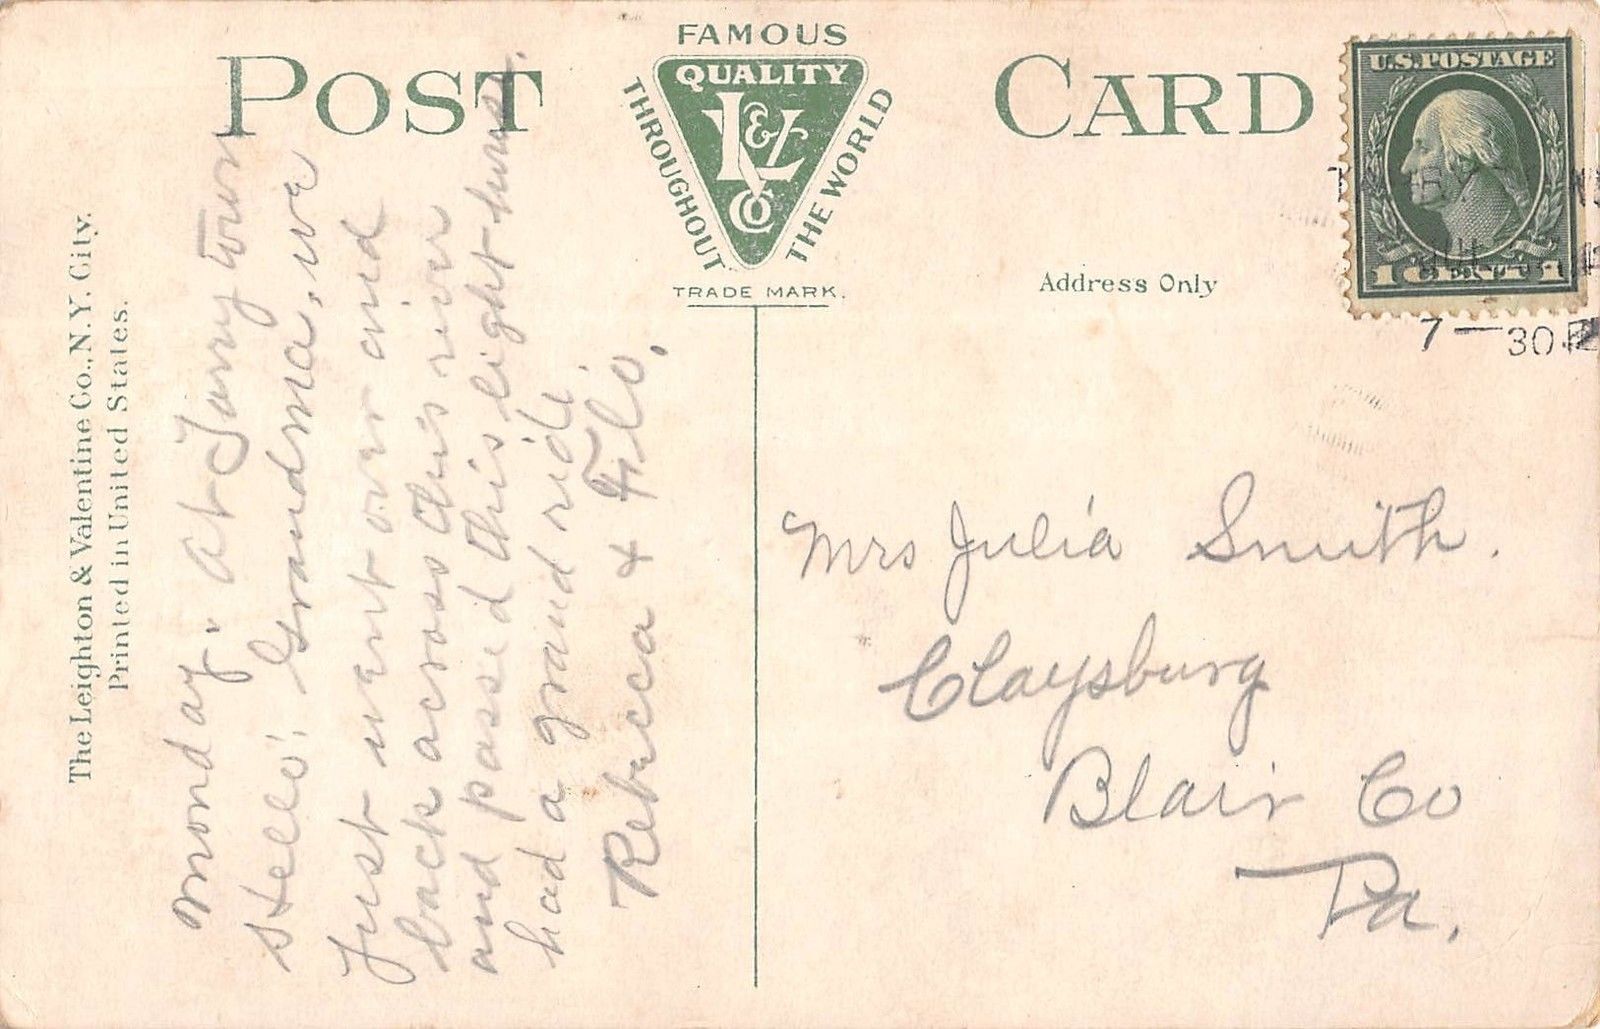 POST CARD
FAMOUS
QUALITY
L & V
Co
THROUGHOUT
THE WORLD
TRADE MARK.
Address Only
U.S. POSTAGE
1 CENT 1
7 — 30 P
The Leighton & Valentine Co., N.Y. City.
Printed in United States.
Monday. At Tarry town
Hello! Grandma, we
Just went over and
back across this river
and passed this light-house.
had a grand ride.
Rebecca & Filo.
Mrs Julia Smith.
Claysburg
Blair Co
Pa.